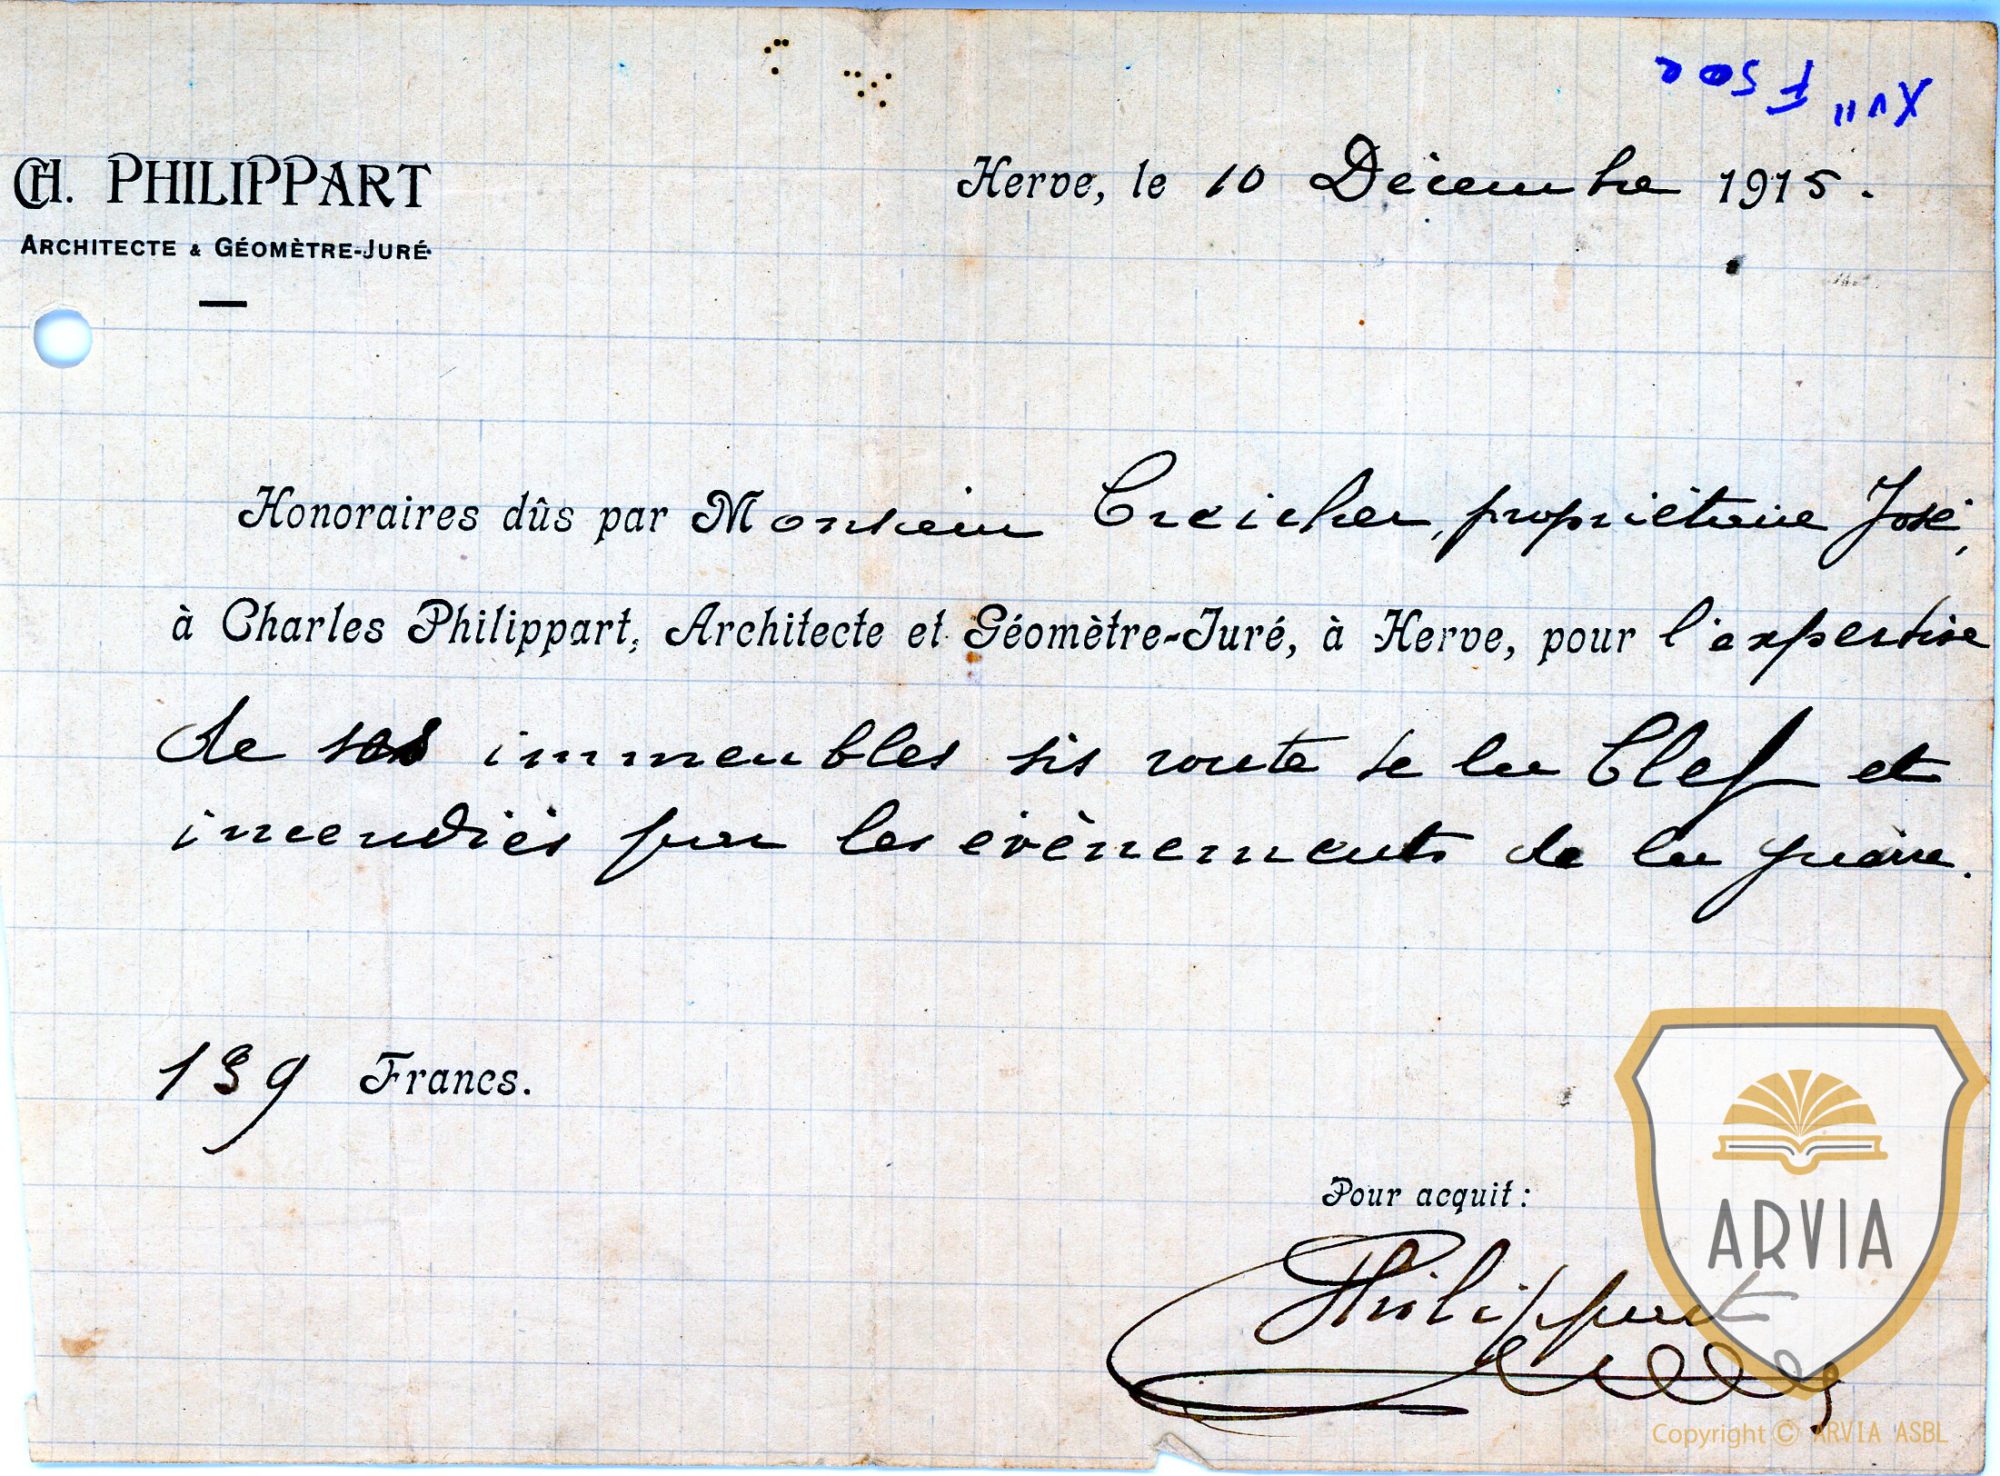 CH. PHILIPPART
ARCHITECTE & GÉOMÈTRE-JURÉ
Herve, le 10 Décembre 1915.
Honoraires dûs par Monsieur Creicher, propriétaire José,
à Charles Philippart, Architecte et Géomètre-Juré, à Herve, pour l'expertise
de ses immeubles sis route de la Clef et
incendiés par les évènements de la guerre.
139 Francs.
Pour acquit:
Philippart
ARVIA
Copyright © ARVIA ASBL